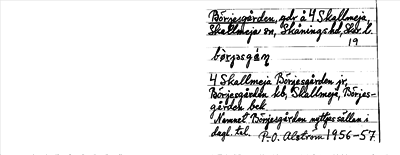 Börjesgården, gdr å 4 Skallmeja,
Skallmeja sn, Skånings hd, Skar. l.
19
börjasgán
4 Skallmeja Börjesgården jr,
Börjesgården kb, Skallmeja, Börjes-
gården bek
Namnet Börjesgården nyttjes sällan i
dagl. tal. P-O. Alström 1956-57.